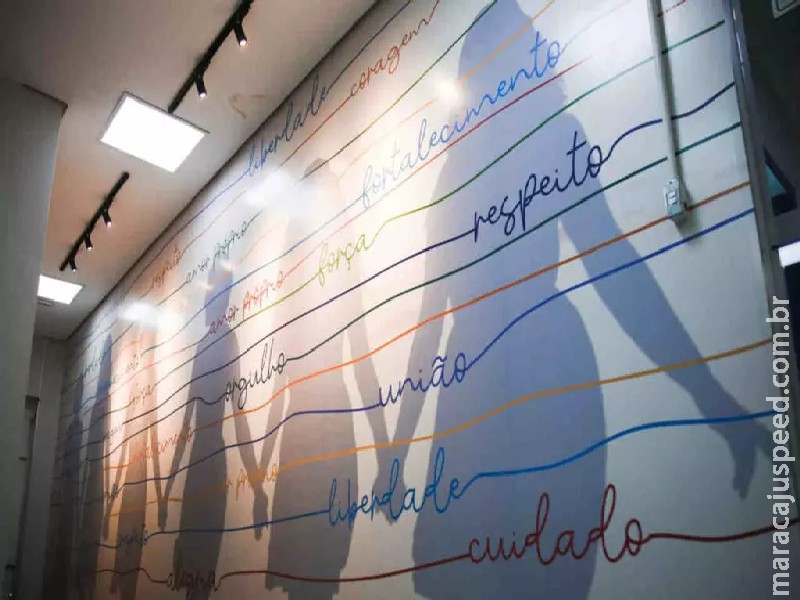 coragem
liberdade
fortalecimento
respeito
respeito
amor próprio
força
amor próprio
orgulho
união
amor próprio
liberdade
cuidado
alegria
maracajuspeed.com.br